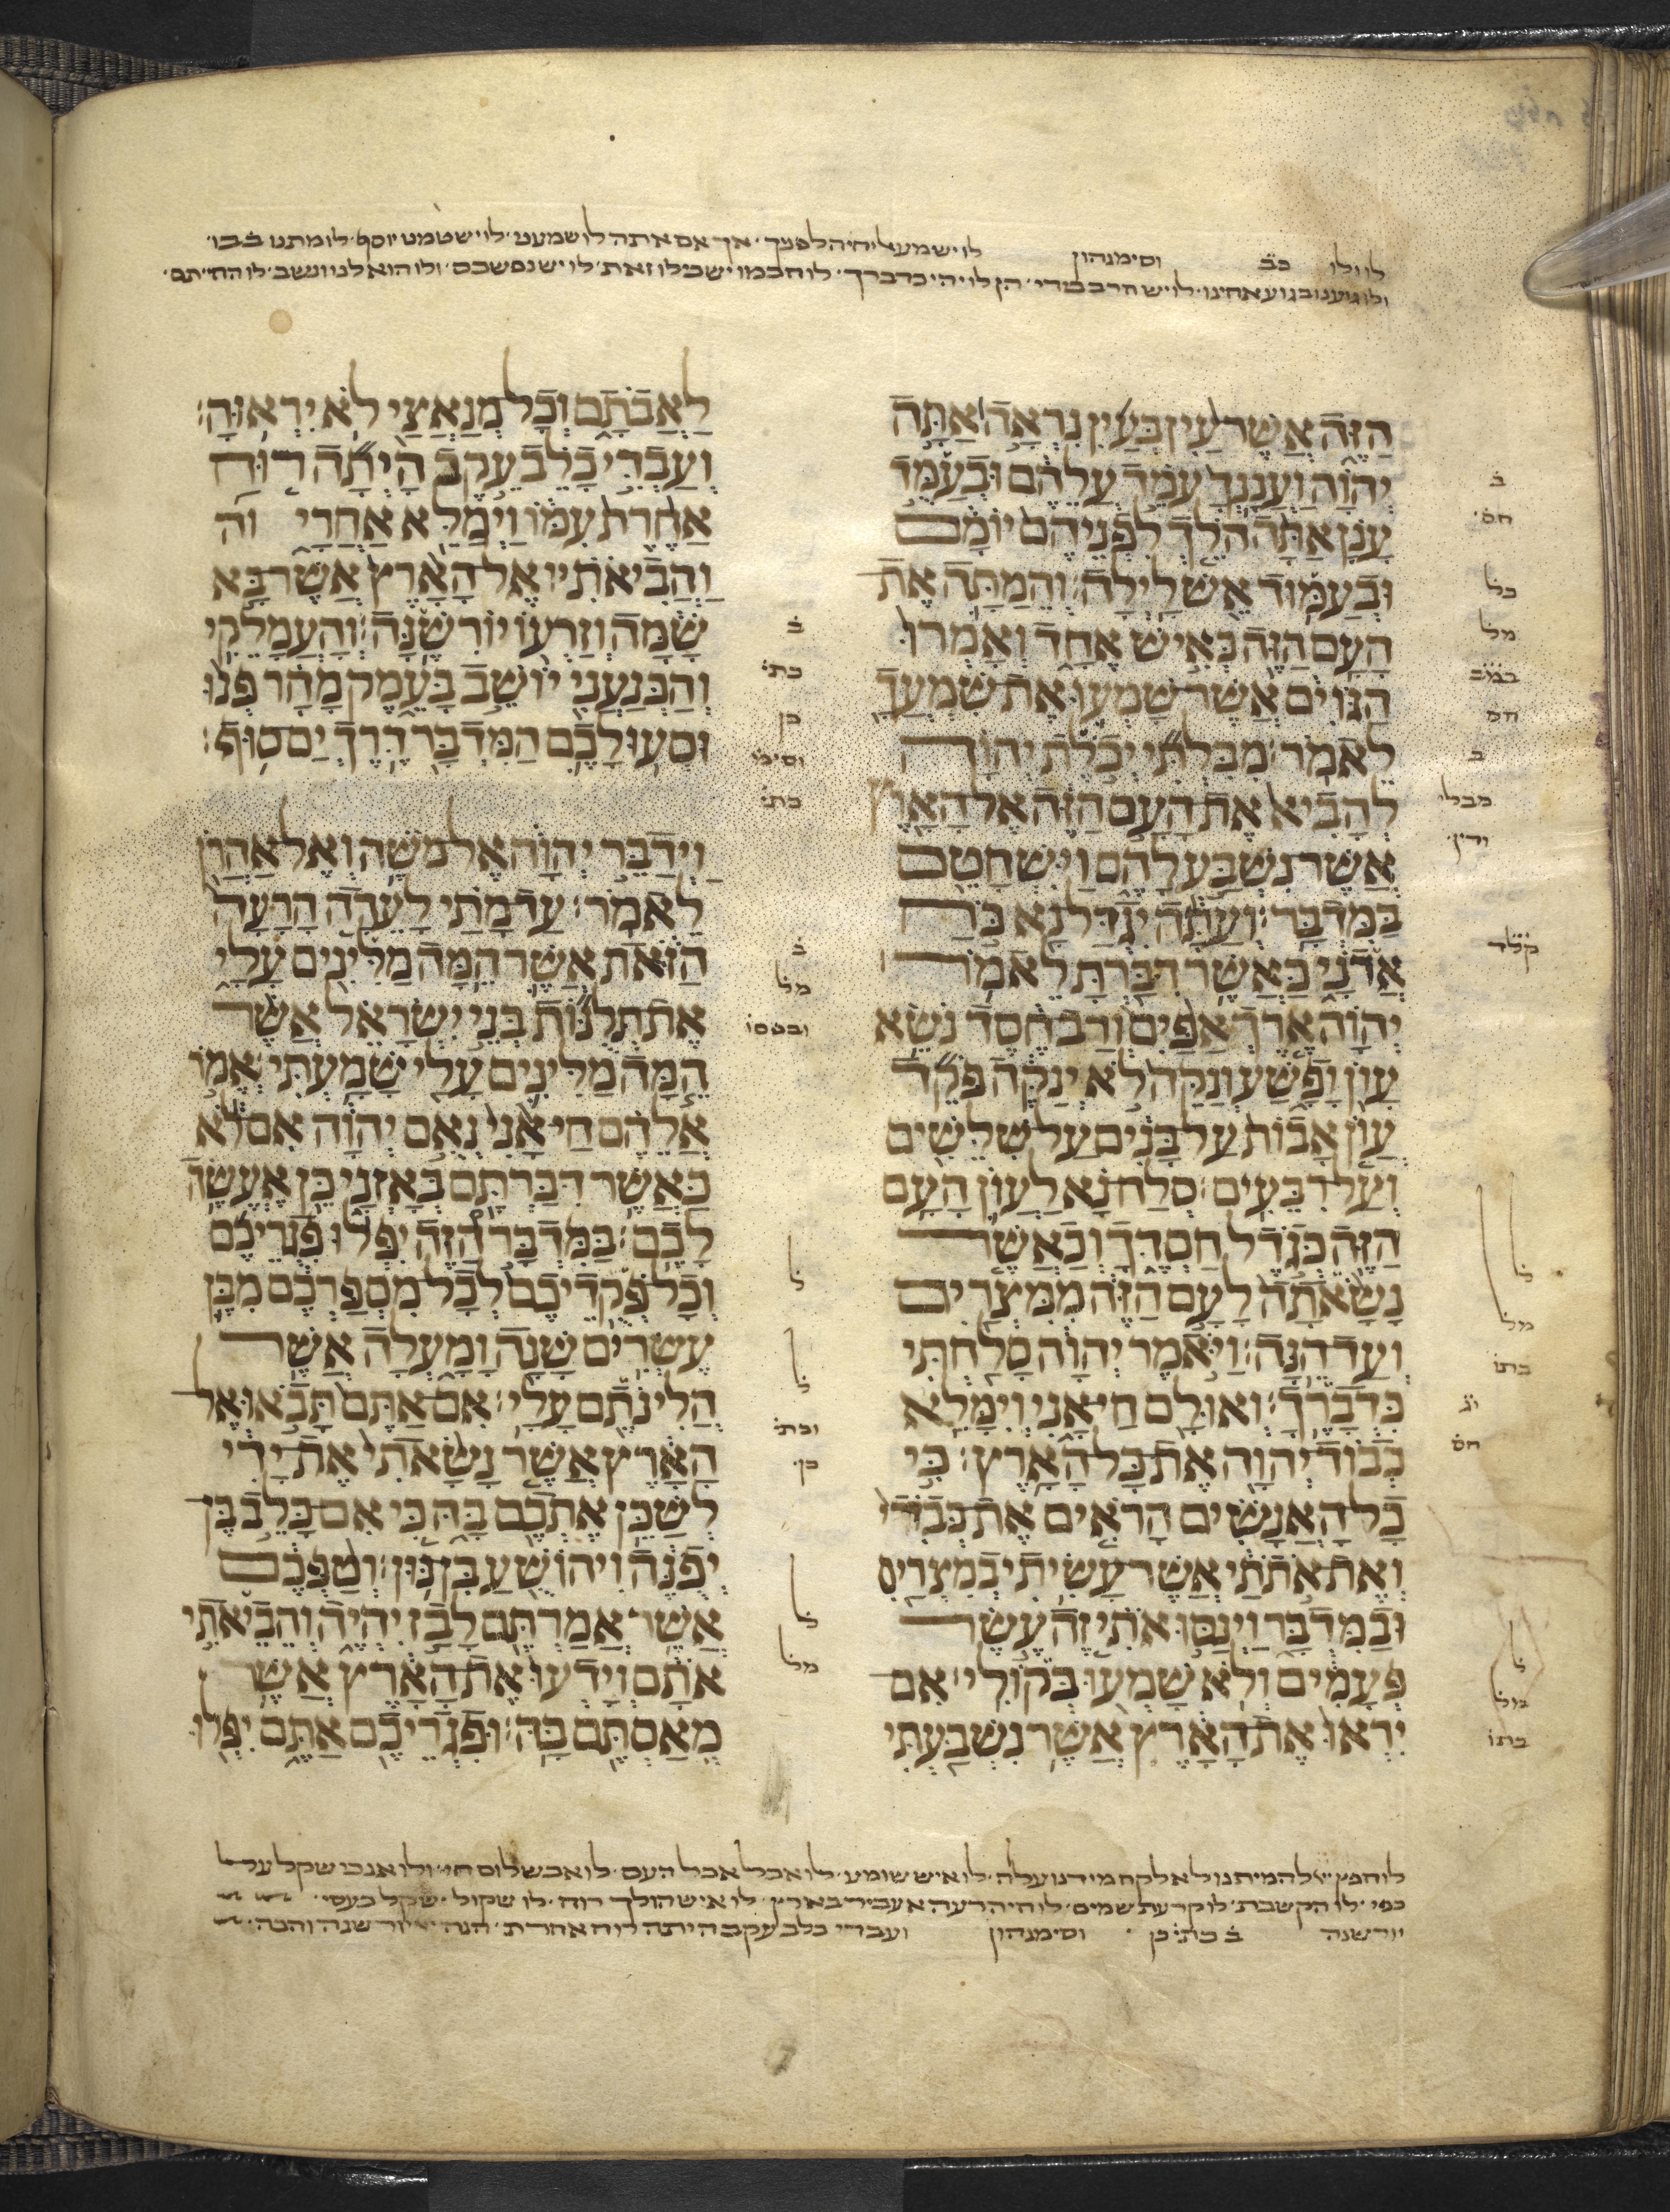 לו ולו כב וסימנהון לו ישמעאל יחיה לפניך אך אם אתה לו שמעני לו ישטמנו יוסף לו מתנו בבו
ולו גוענו בגוע אחינו לו יש חרב בידי הן לו יהי כדברך לו חכמו ישכילו זאת לו יש נפשכם ולו הוא לנו ונשב לו החיתם
הזה אשר עין בעין נראה אתה
יהוה ועננך עמד עלהם ובעמד
ענן אתה הלך לפניהם יומם
ובעמוד אש לילה׃ והמתה את
העם הזה כאיש אחד ואמרו
הגוים אשר שמעו את שמעך
לאמר׃ מבלתי יכלת יהוה
להביא את העם הזה אל הארץ
אשר נשבע להם וישחטם
במדבר׃ ועתה יגדל נא כח
אדני כאשר דברת לאמר׃
יהוה ארך אפים ורב חסד נשא
עון ופשע ונקה לא ינקה פקד
עון אבות על בנים על שלשים
ועל רבעים׃ סלח נא לעון העם
הזה כגדל חסדך וכאשר
נשאתה לעם הזה ממצרים
ועד הנה׃ ויאמר יהוה סלחתי
כדברך׃ ואולם חי אני וימלא
כבוד יהוה את כל הארץ׃ כי
כל האנשים הראים את כבדי
ואת אתתי אשר עשיתי במצרים
ובמדבר וינסו אתי זה עשר
פעמים ולא שמעו בקולי׃ אם
יראו את הארץ אשר נשבעתי
לאבתם וכל מנאצי לא יראוה׃
ועבדי כלב עקב היתה רוח
אחרת עמו וימלא אחרי
והביאתיו אל הארץ אשר בא
שמה וזרעו יורשנה׃ והעמלקי
והכנעני יושב בעמק מחר פנו
וסעו לכם המדבר דרך ים סוף׃
וידבר יהוה אל משה ואל אהרן
לאמר׃ עד מתי לעדה הרעה
הזאת אשר המה מלינים עלי
את תלנות בני ישראל אשר
המה מלינים עלי שמעתי׃ אמר
אלהם חי אני נאם יהוה אם לא
כאשר דברתם באזני כן אעשה
לכם׃ במדבר הזה יפלו פגריכם
וכל פקדיכם לכל מספרכם מבן
עשרים שנה ומעלה אשר
הלינתם עלי׃ אם אתם תבאו אל
הארץ אשר נשאתי את ידי
לשכן אתכם בה כי אם כלב בן
יפנה ויהושע בן נון׃ וטפכם
אשר אמרתם לבז יהיה והביאתי
אתם וידעו את הארץ אשר
מאסתם בה׃ ופגריכם אתם יפלו
לו חפץ להמיתנו לא לקח מידנו עלה לו איש שומע לו אכל אכל העם לו אבשלום חי ולו אנכי שקל על
כפי לו הקשבת לו קרעת שמים לו חיה רעה אעביר בארץ לו איש הולך רוח לו שקול ישקל כעסי
יורשנה ב כת כן וסימנהון ועבדי כלב עקב היתה רוח אחרת הנה